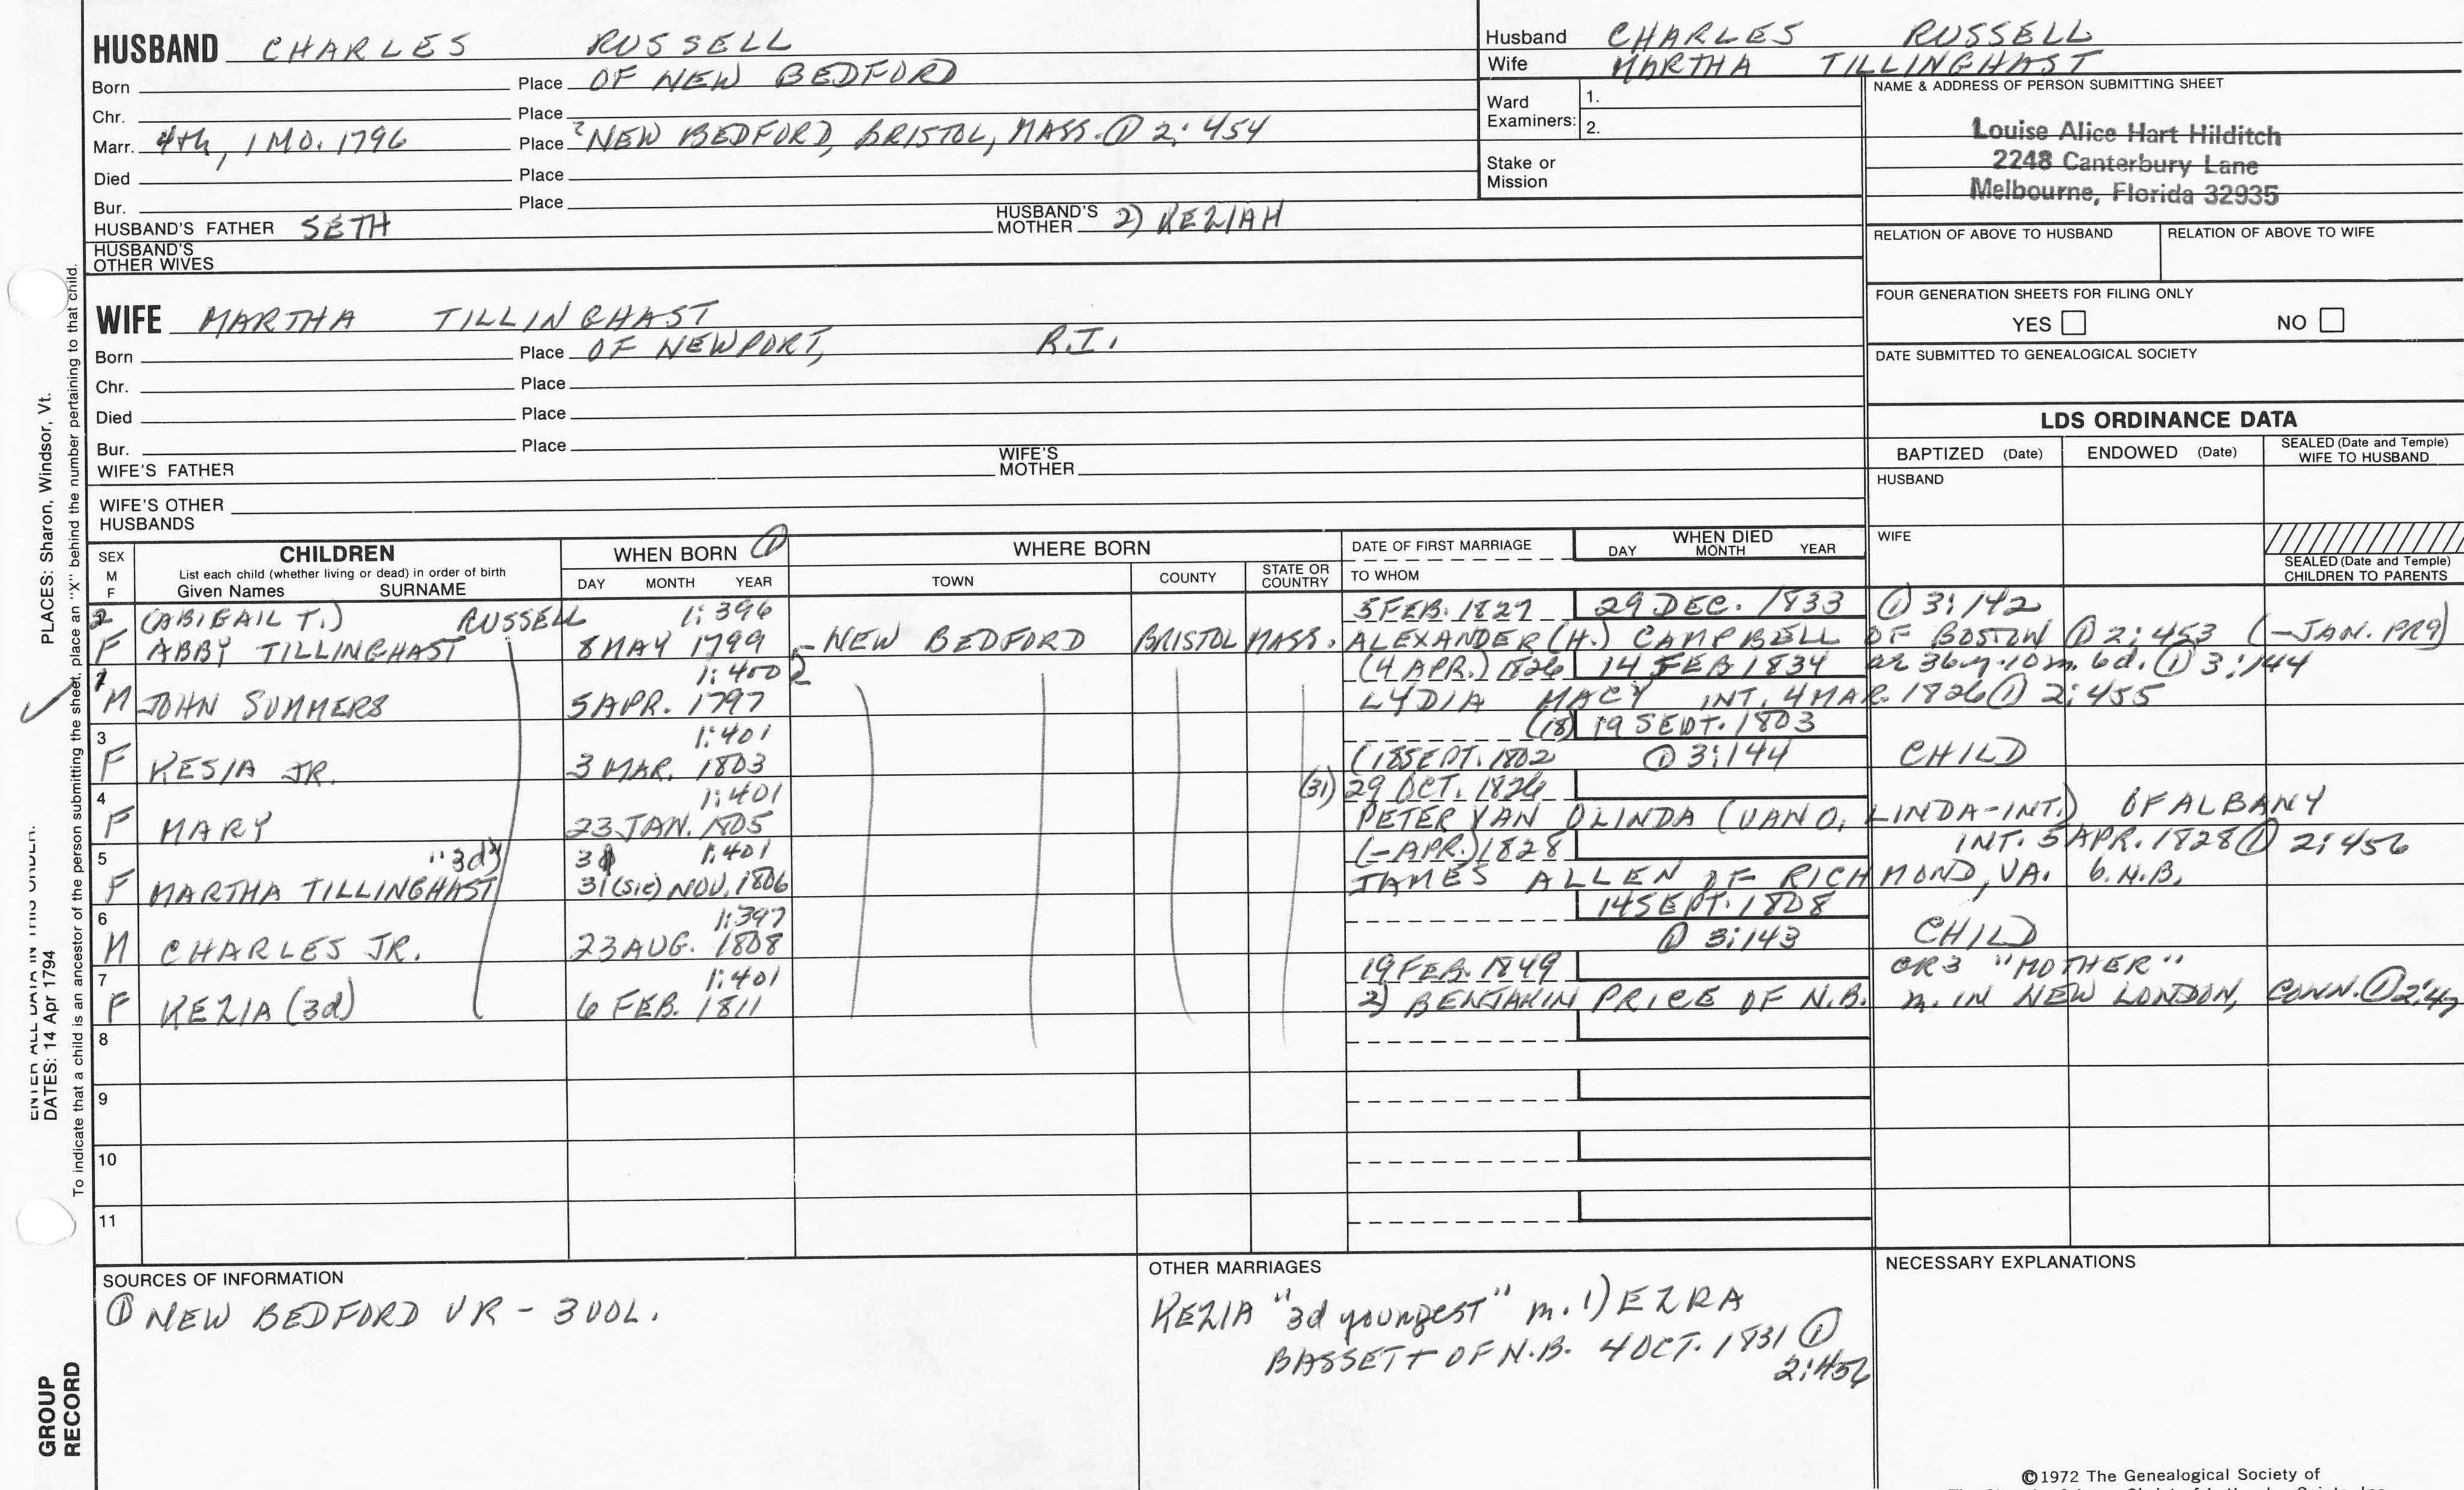 HUSBAND CHARLES RUSSELL
Born Place OF NEW BEDFORD
Chr. Place
Marr. 4th, 1 MO. 1796 Place ? NEW BEDFORD, BRISTOL, MASS. ① 2:454
Died Place
Bur. Place
HUSBAND'S FATHER SETH HUSBAND'S MOTHER 2) KEZIAH
HUSBAND'S OTHER WIVES
Husband CHARLES RUSSELL
Wife MARTHA TILLINGHAST
Ward Examiners: 1.
2.
Stake or Mission
NAME & ADDRESS OF PERSON SUBMITTING SHEET
Louise Alice Hart Hilditch
2248 Canterbury Lane
Melbourne, Florida 32935
RELATION OF ABOVE TO HUSBAND RELATION OF ABOVE TO WIFE
FOUR GENERATION SHEETS FOR FILING ONLY
YES NO
DATE SUBMITTED TO GENEALOGICAL SOCIETY
WIFE MARTHA TILLINGHAST
Born Place OF NEWPORT, R.I.
Chr. Place
Died Place
Bur. Place
WIFE'S FATHER WIFE'S MOTHER
WIFE'S OTHER HUSBANDS
LDS ORDINANCE DATA
BAPTIZED (Date) ENDOWED (Date) SEALED (Date and Temple) WIFE TO HUSBAND
HUSBAND
WIFE
SEALED (Date and Temple) CHILDREN TO PARENTS
SEX M F CHILDREN WHEN BORN ① WHERE BORN DATE OF FIRST MARRIAGE WHEN DIED
List each child (whether living or dead) in order of birth
Given Names SURNAME DAY MONTH YEAR TOWN COUNTY STATE OR COUNTRY TO WHOM DAY MONTH YEAR
2 (ABIGAIL T.) RUSSELL 1:396 5 FEB. 1827 29 DEC. 1833 ① 3:142
F ABBY TILLINGHAST 8 MAY 1799 NEW BEDFORD BRISTOL MASS. ALEXANDER (H.) CAMPBELL OF BOSTON ① 2:453 (-JAN. PR9)
1 1:400 (4 APR.) 1826 14 FEB 1834 ae 36y. 10m. 6d. ① 3:144
M JOHN SUMMERS 5 APR. 1797 LYDIA MACY INT. 4 MAR. 1826 ① 2:455
3 1:401 (18) 19 SEPT. 1803
F KESIA JR. 3 MAR. 1803 (18 SEPT. 1802 ① 3:144 CHILD
4 1:401 (31) 29 OCT. 1826
F MARY 23 JAN. 1805 PETER VAN OLINDA (VAN O. LINDA-INT.) OF ALBANY
5 "3d" 1:401 (-APR.) 1828 INT. 5 APR. 1828 ① 2:456
F MARTHA TILLINGHAST 31 (sic) NOV. 1806 JAMES ALLEN OF RICHMOND, VA. 6. N.B.
6 1:397 14 SEPT. 1808
M CHARLES JR. 23 AUG. 1808 ① 3:143 CHILD
7 1:401 19 FEB. 1849 GR3 "MOTHER"
F KEZIA (3d) 6 FEB. 1811 2) BENJAMIN PRICE OF N.B. m. IN NEW LONDON, CONN. ①
8
9
10
11
SOURCES OF INFORMATION
① NEW BEDFORD VR - 3 VOL.
OTHER MARRIAGES
KEZIA "3d youngest" m. 1) EZRA
BASSETT OF N.B. 4 OCT. 1831 ①
2:456
NECESSARY EXPLANATIONS
©1972 The Genealogical Society of
PLACES: Sharon, Windsor, Vt.
DATES: 14 Apr 1794
To indicate that a child is an ancestor of the person submitting the sheet, place an "X" behind the number pertaining to that child.
GROUP
RECORD